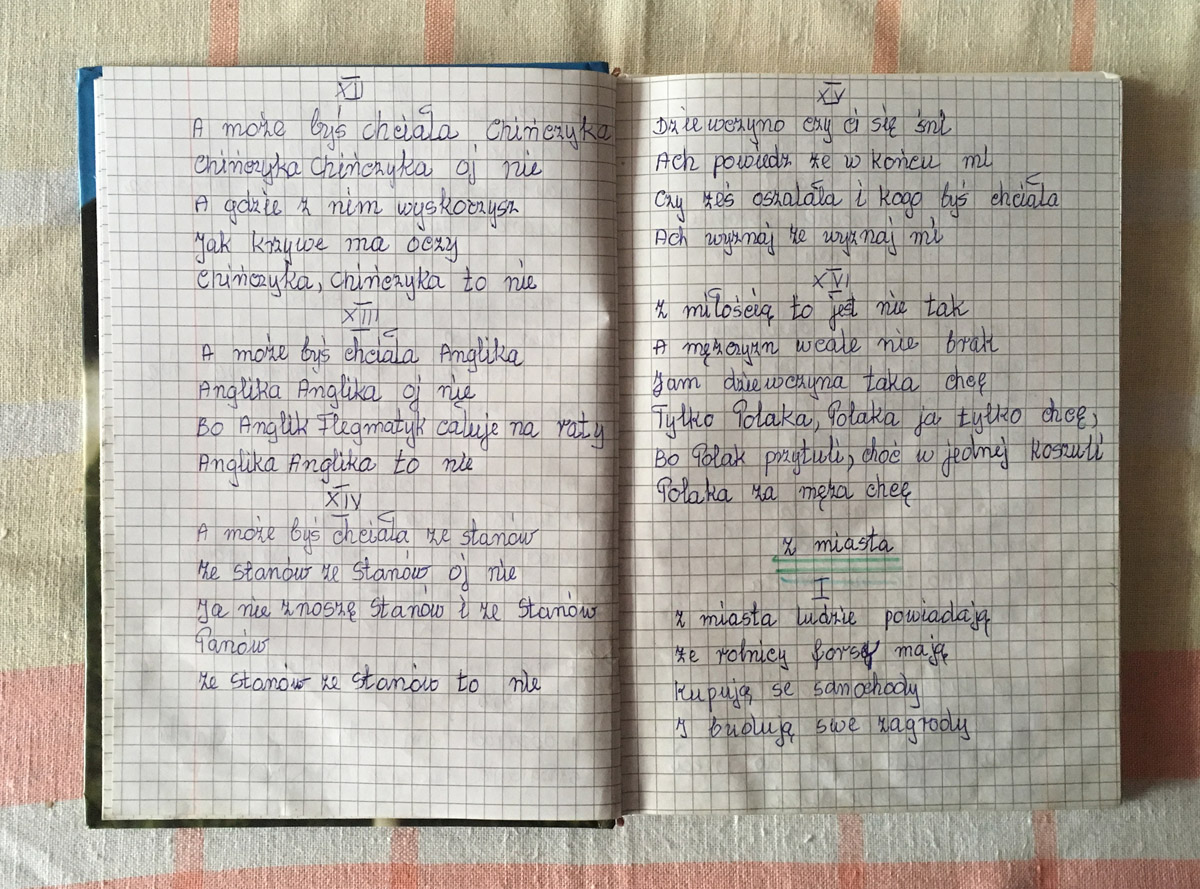 XI
A może byś chciała Chińczyka
Chińczyka Chińczyka oj nie
A gdzie z nim wyskoczysz
Jak krzywe ma oczy
Chińczyka, Chińczyka to nie
XIII
A może byś chciała Anglika
Anglika Anglika oj nie
Bo Anglik Flegmatyk całuje na raty
Anglika Anglika to nie
XIV
A może byś chciała ze stanów
Ze Stanów ze Stanów oj nie
Ja nie znoszę Stanów i ze Stanów
Panów
Ze Stanów ze Stanów to nie
XV
Dziewczyno czy ci się śni
Ach powiedz że w końcu mi
Czy żeś oszalała i kogo byś chciała
Ach wyznaj że wyznaj mi
XVI
Z miłością to jest nie tak
A mężczyzn wcale nie brak
Jam dziewczyna taka chcę
Tylko Polaka, Polaka ja tylko chcę,
Bo Polak przytuli, choć w jednej koszuli
Polaka za męża chcę
Z miasta
I
Z miasta ludzie powiadają
Że rolnicy forsę mają
Kupują se samochody
I budują swe zagrody